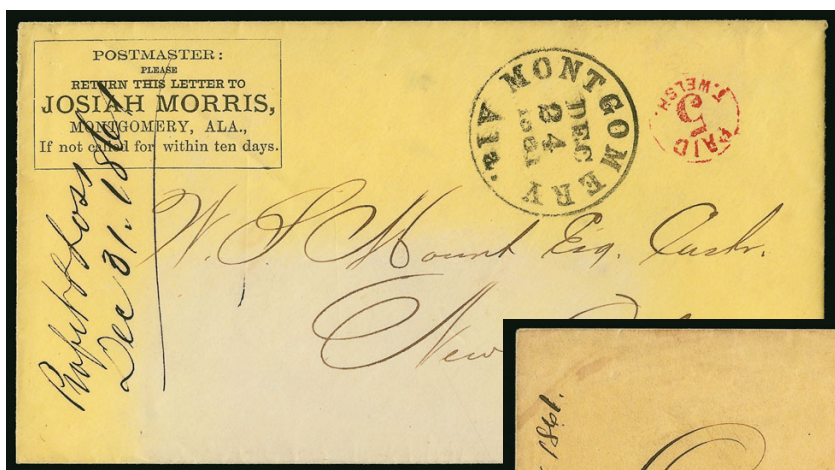 POSTMASTER:
PLEASE
RETURN THIS LETTER TO
JOSIAH MORRIS,
MONTGOMERY, ALA.,
If not called for within ten days.
MONTGOMERY Ala.
DEC
24
1861
PAID
5
T. WELSH.
Profit & Loss
Dec 31. 1861
W. S. Mount Esq. Cashr.
New
1861.